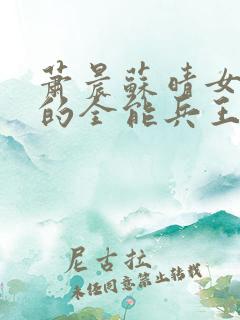 蕭晨蘇晴女
的全能兵王
尼古拉
未经同意禁止转载